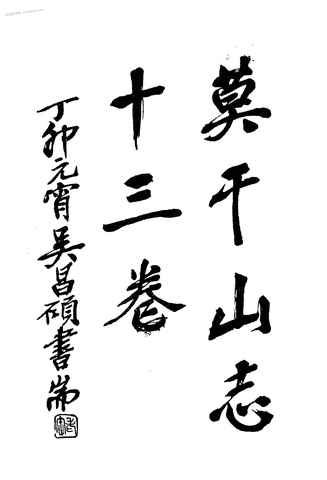 莫干山志
十三卷
丁卯元宵吴昌硕書耑